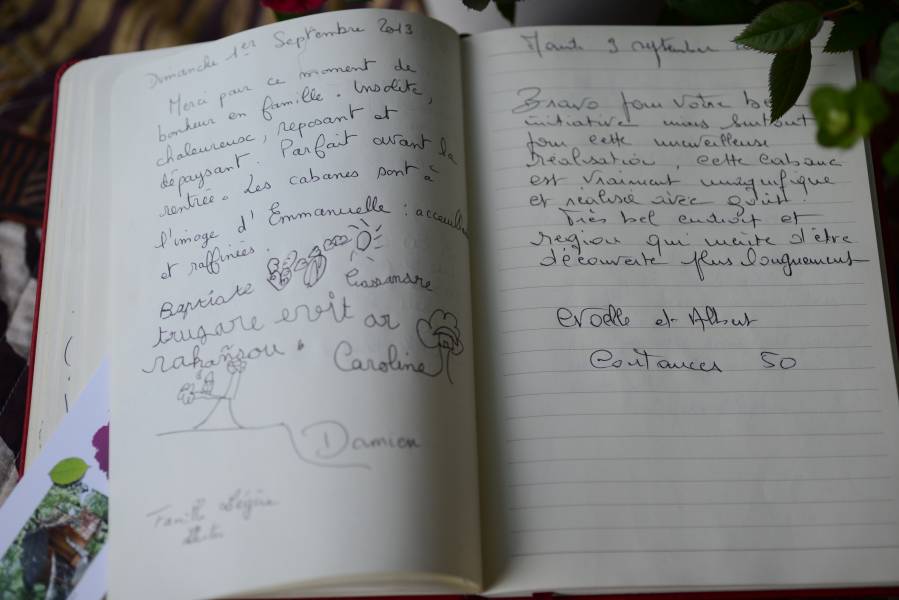 Dimanche 1er Septembre 2013
Merci pour ce moment de
bonheur en famille. Insolite,
chaleureux, reposant et
dépaysant. Parfait avant la
rentrée. Les cabanes sont à
l'image d'Emmanuelle : accueill
et raffinées.
Baptiste Cassandre
trugare evit ar
Caroline
Damien
Famille
9 septembre
Bravo pour votre be
initiative mais surtout
pour cette merveilleuse
réalisation, cette cabane
est vraiment magnifique
et réalisé avec goût.
Très bel endroit et
région qui mérite d'être
découverte plus longuement
et Albert
Coutances 50